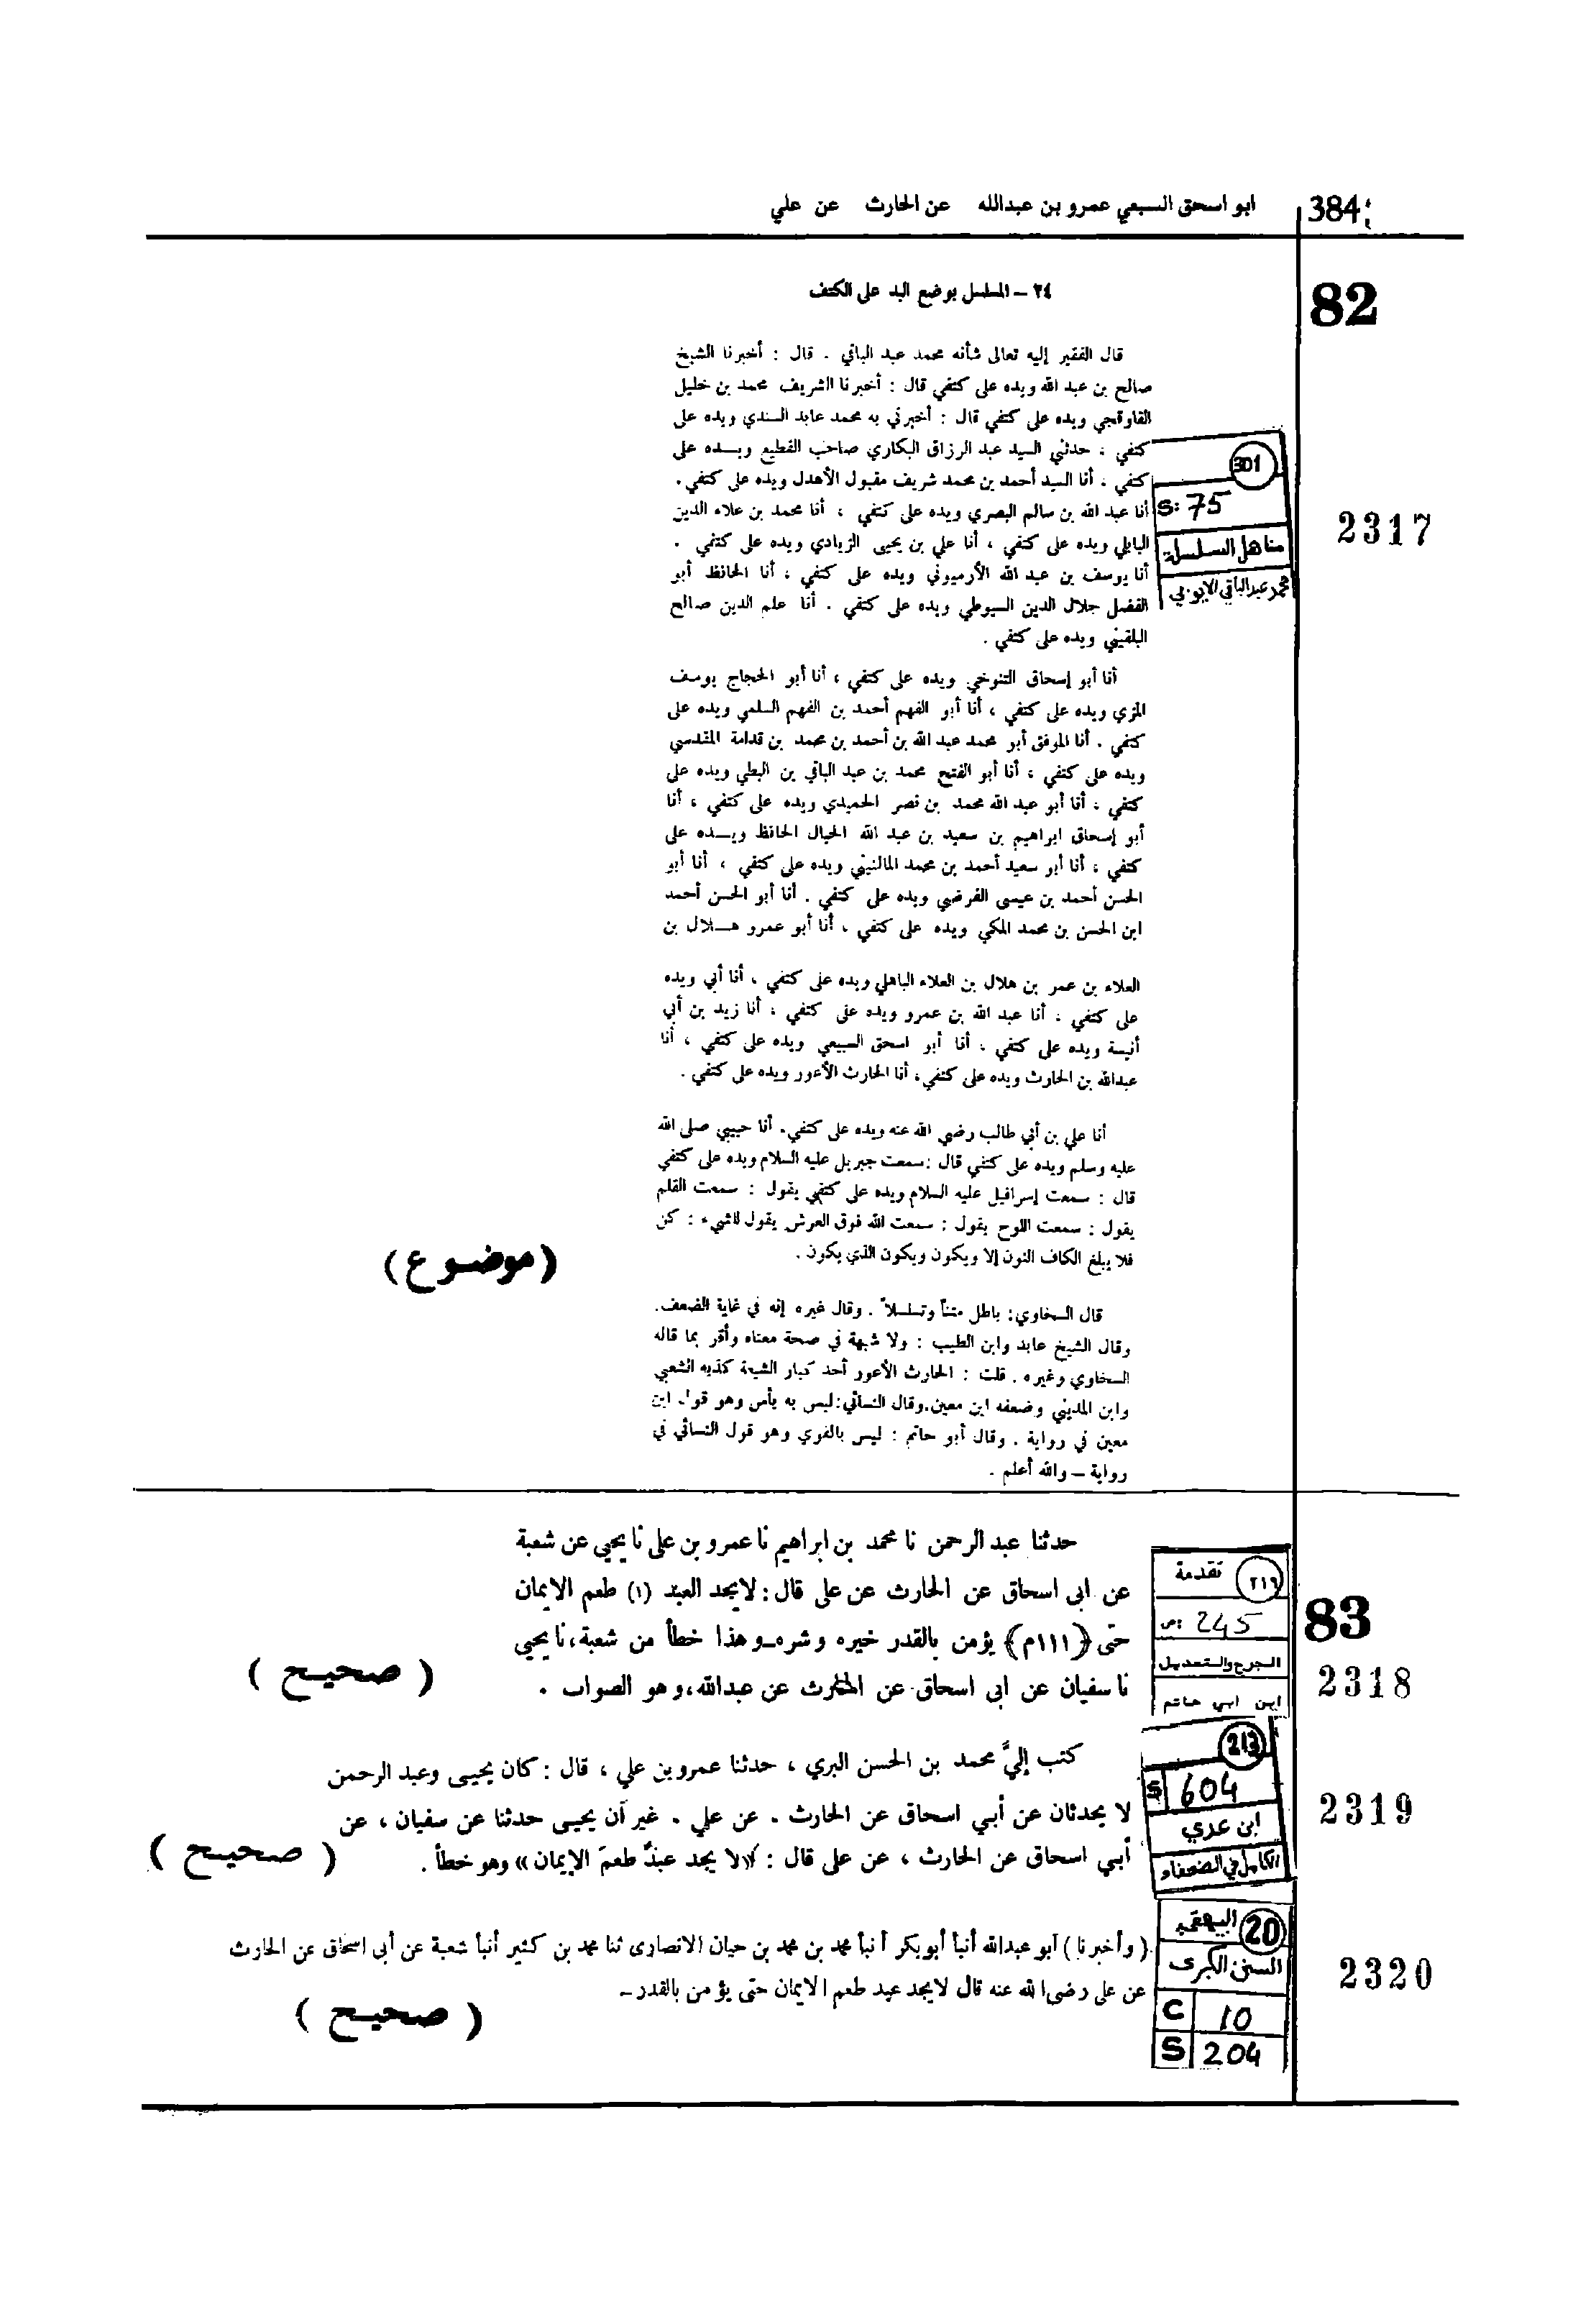 384
ابو اسحق السبعي عمرو بن عبدالله عن الحارث عن علي
82
٢٤ – المسلسل بوضع اليد على الكتف
قال الفقير إليه تعالى شأنه محمد عبد الباقي . قال : أخبرنا الشيخ
صالح بن عبد الله ويده على كتفي قال : أخبرنا الشريف محمد بن خليل
القاوقجي ويده على كتفي قال : أخبرني به محمد عابد السندي ويده على
كتفي ، حدثني السيد عبد الرزاق البكاري صاحب القطيع ويده على
كتفي ، أنا السيد أحمد بن محمد شريف مقبول الأهدل ويده على كتفي .
أنا عبد الله بن سالم البصري ويده على كتفي ، أنا محمد بن علاء الدين
البابلي ويده على كتفي ، أنا علي بن يحيى الزيادي ويده على كتفي .
أنا يوسف بن عبد الله الأرميوني ويده على كتفي ، أنا الحافظ أبو
الفضل جلال الدين السيوطي ويده على كتفي . أنا علم الدين صالح
البلقيني ويده على كتفي .
301
S: 75
مناهل السلسلة
محمد عبد الباقي الايوبي
2317
أنا أبو إسحاق التنوخي ويده على كتفي ، أنا أبو الحجاج يوسف
المزي ويده على كتفي ، أنا أبو الفهم أحمد بن الفهم السلمي ويده على
كتفي . أنا الموفق أبو محمد عبد الله بن أحمد بن محمد بن قدامة المقدسي
ويده على كتفي ، أنا أبو الفتح محمد بن عبد الباقي بن البطي ويده على
كتفي ، أنا أبو عبد الله محمد بن نصر الحميدي ويده على كتفي ، أنا
أبو إسحاق ابراهيم بن سعيد بن عبد الله الحبال الحافظ ويده على
كتفي ، أنا أبو سعيد أحمد بن محمد المالنيني ويده على كتفي ، أنا أبو
الحسن أحمد بن عيسى الفرضي ويده على كتفي . أنا أبو الحسن أحمد
ابن الحسن بن محمد المكي ويده على كتفي ، أنا أبو عمرو هلال بن
العلاء بن عمر بن هلال بن العلاء الباهلي ويده على كتفي ، أنا أبي ويده
على كتفي ، أنا عبد الله بن عمرو ويده على كتفي ، أنا زيد بن أبي
أنيسة ويده على كتفي ، أنا أبو اسحق السبيعي ويده على كتفي ، أنا
عبدالله بن الحارث ويده على كتفي ، أنا الحارث الأعور ويده على كتفي .
أنا علي بن أبي طالب رضي الله عنه ويده على كتفي . أنا حبيبي صلى الله
عليه وسلم ويده على كتفي قال : سمعت جبريل عليه السلام ويده على كتفي
قال : سمعت إسرافيل عليه السلام ويده على كتفي يقول : سمعت القلم
يقول : سمعت اللوح يقول : سمعت الله فوق العرش يقول للشيء : كن
فلا يبلغ الكاف النون إلا ويكون ويكون الذي يكون .
(موضوع)
قال السخاوي : باطل متناً وتسلسلاً . وقال غيره إنه في غاية الضعف .
وقال الشيخ عابد وابن الطيب : ولا شبهة في صحة معناه وأقر بما قاله
السخاوي وغيره . قلت : الحارث الأعور أحد كبار الشيعة كذبه الشعبي
وابن المديني وضعفه ابن معين . وقال النسائي : ليس به بأس وهو قول ابن
معين في رواية . وقال أبو حاتم : ليس بالقوي وهو قول النسائي في
رواية – والله أعلم .
83
حدثنا عبد الرحمن نا محمد بن ابراهيم نا عمرو بن على نا يحيى عن شعبة
عن ابى اسحاق عن الحارث عن على قال : لا يجد العبد (١) طعم الايمان
حتى (١١١م) يؤمن بالقدر خيره وشره - وهذا خطأ من شعبة ، نا يحيى
نا سفيان عن ابى اسحاق عن الحارث عن عبدالله ، وهو الصواب .
( صحيح )
٢١٩
تقدمة
ص: 245
الجرح والتعديل
ابن ابي حاتم
2318
كتب إليَّ محمد بن الحسن البري ، حدثنا عمرو بن علي ، قال : كان يحيى وعبد الرحمن
لا يحدثان عن أبي اسحاق عن الحارث . عن علي . غير أن يحيى حدثنا عن سفيان ، عن
أبي اسحاق عن الحارث ، عن على قال : «لا يجد عبدٌ طعمَ الإيمان» وهو خطأ .
( صحيح )
213
S 604
ابن عدي
الكامل في الضعفاء
2319
( وأخبرنا ) ابو عبدالله أنبأ أبو بكر أنبأ محمد بن محمد بن حيان الانصارى ثنا محمد بن كثير أنبأ شعبة عن أبى اسحاق عن الحارث
عن على رضى الله عنه قال لا يجد عبد طعم الايمان حتى يؤمن بالقدر –
( صحيح )
20
البيهقي
السنن الكبرى
C 10
S 204
2320